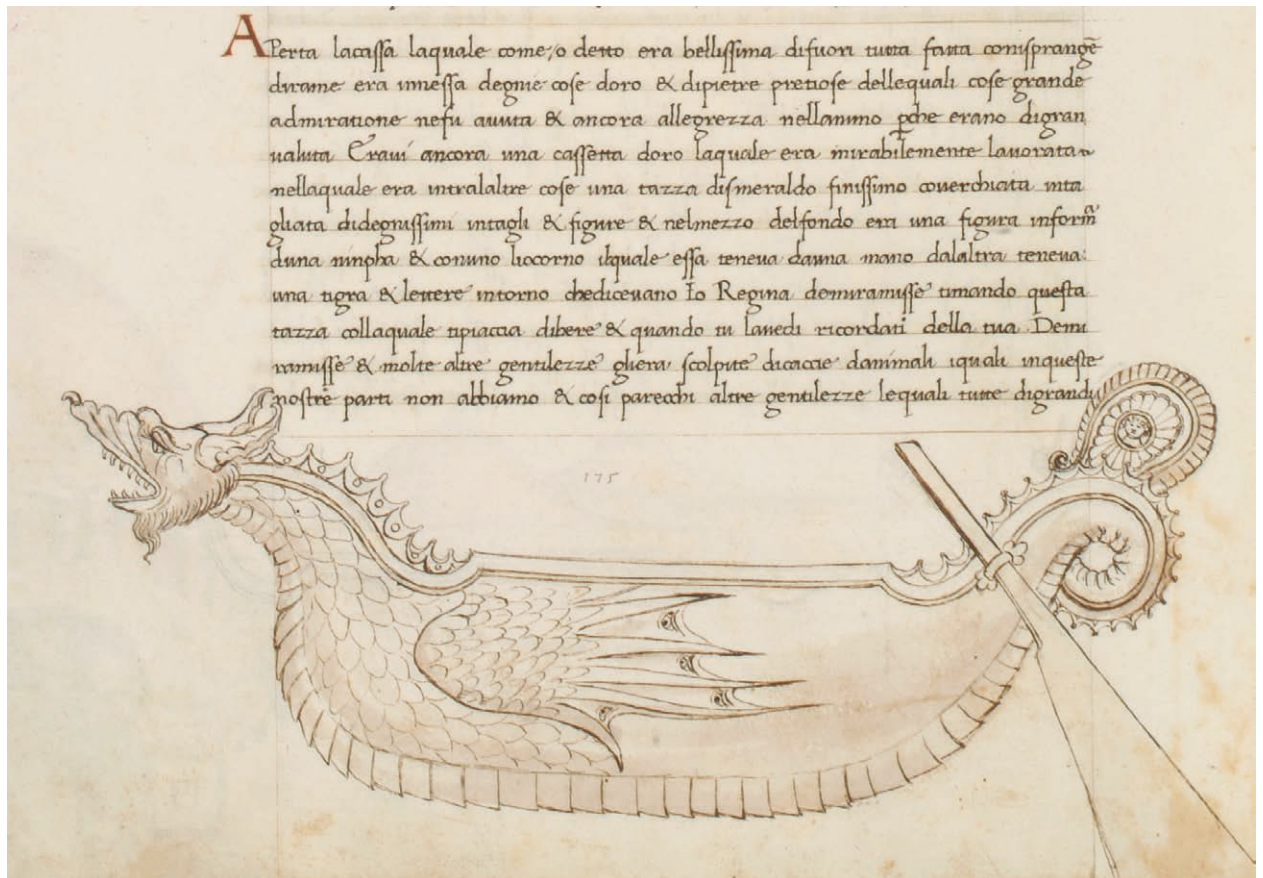 APerta lacassa laquale come/o detto era bellissima difuori tutta fatta conisprangē
dirame era inнessa degnie cose doro & dipietre pretiose dellequali cose grande
admiratione nefu avuta & ancora allegrezza nellanimo ꝑche erano digran
valuta Eravi ancora una cassetta doro laquale era mirabilemente lavorata
nellaquale era intralaltre cose una tazza dismeraldo finissimo coverchiata inta
gliata didegnissimi intagli & figure & nelmezzo delfondo era una figura inform̄
duna ninpha & conuno liocorno ilquale essa teneva dauna mano dalaltra teneva:
una tigra & lettere intorno chedicevano Io Regina demiramisse timando questa
tazza collaquale tipiaccia dibere & quando tu lavedi ricordati della tua Demi
ramisse & molte altre gentilezze gliera scolpite dicaccie danimali iquali inqueste
nostre parti non abbiamo & cosi parecchi altre gentilezze lequali tutte digrandi
175